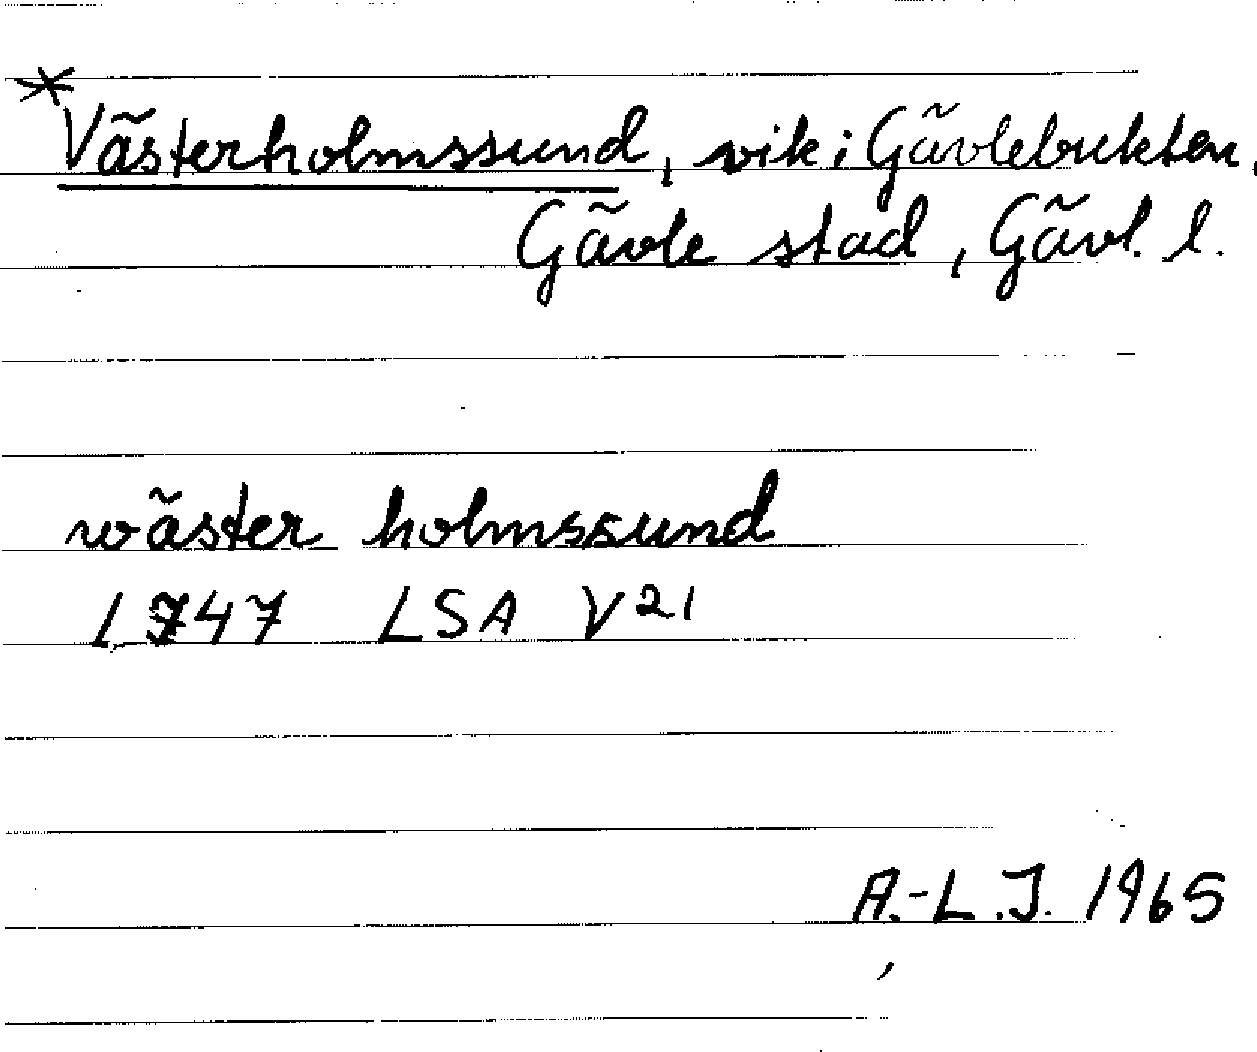 *Västerholmssund, vik i Gävlebukten,
Gävle stad, Gävl. l.
wäster holmssund
1747 LSA V21
A.-L.J. 1965